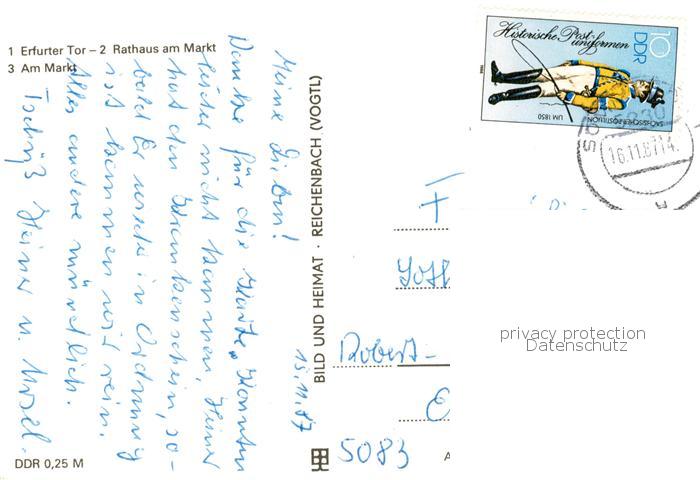 1 Erfurter Tor – 2 Rathaus am Markt
3 Am Markt
15.11.87
Meine Lieben!
Danke für die Karte, Konnten
leider nicht kommen, Heiner
hat den Krankenschein, so-
bald Er wieder in Ordnung
ist kommen wir rein.
Alles andere mündlich.
Tschüß Heiner u.
DDR 0,25 M
BILD UND HEIMAT · REICHENBACH (VOGTL)
Historische Post-
uniformen
10
DDR
UM 1850
16.11.87 14
F
Robert-
E
5083
A
privacy protection
Datenschutz